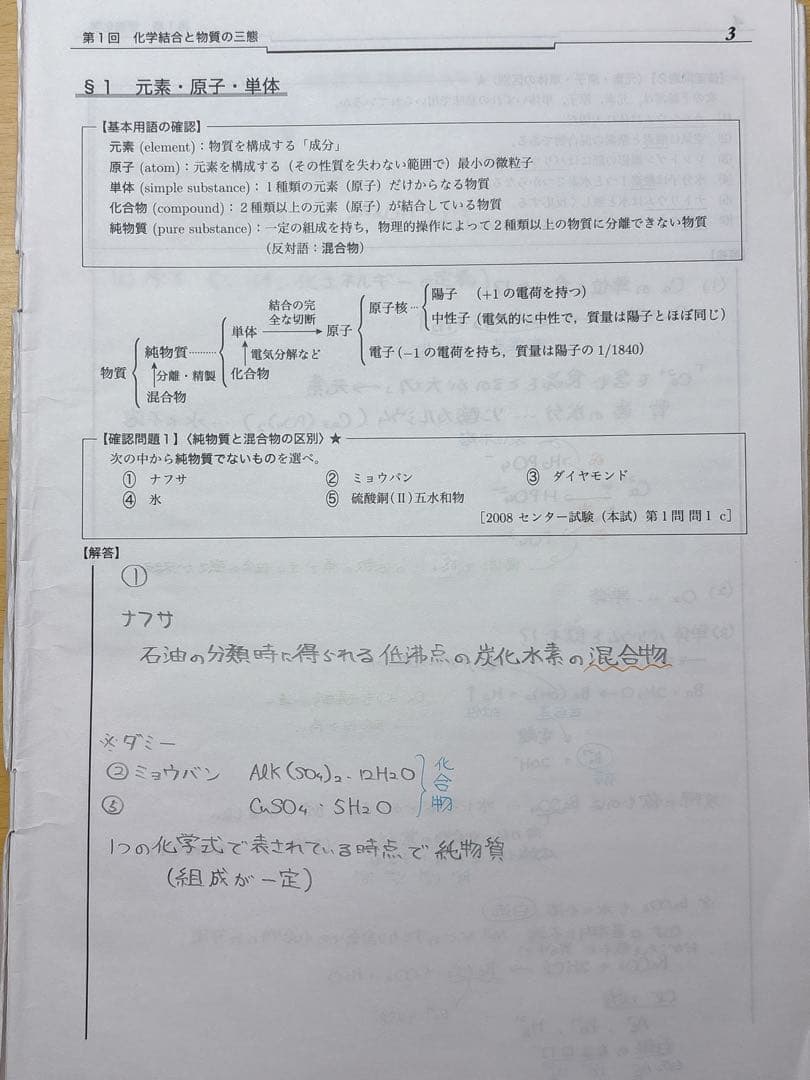 第1回 化学結合と物質の三態 3
§1 元素・原子・単体
【基本用語の確認】
元素 (element)：物質を構成する「成分」
原子 (atom)：元素を構成する（その性質を失わない範囲で）最小の微粒子
単体 (simple substance)：1種類の元素（原子）だけからなる物質
化合物 (compound)：2種類以上の元素（原子）が結合している物質
純物質 (pure substance)：一定の組成を持ち，物理的操作によって2種類以上の物質に分離できない物質
（反対語：混合物）
物質
純物質
分離・精製
混合物
単体
電気分解など
化合物
結合の完
全な切断
原子
原子核
陽子 （+1の電荷を持つ）
中性子（電気的に中性で，質量は陽子とほぼ同じ）
電子（−1の電荷を持ち，質量は陽子の1/1840）
【確認問題1】〈純物質と混合物の区別〉★
次の中から純物質でないものを選べ。
① ナフサ ② ミョウバン ③ ダイヤモンド
④ 氷 ⑤ 硫酸銅(Ⅱ)五水和物
［2008 センター試験（本試）第1問 問1 c］
【解答】
①
ナフサ
石油の分類時に得られる低沸点の炭化水素の混合物
※ダミー
②ミョウバン AlK(SO4)2・12H2O
⑤ CuSO4・5H2O
化合物
1つの化学式で表されている時点で純物質
(組成が一定)